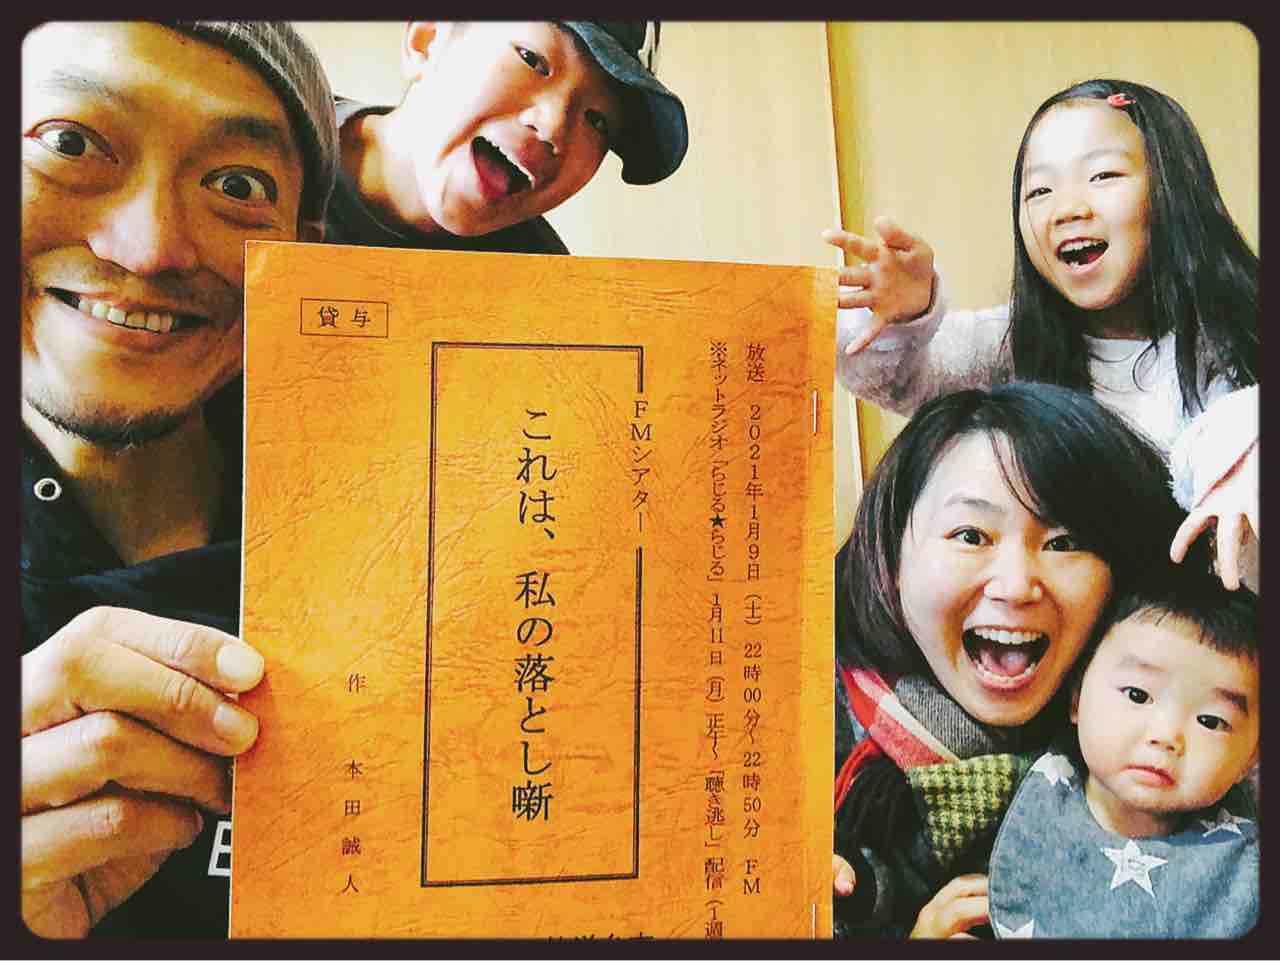 貸与
放送 2021年1月9日（土）22時00分〜22時50分 FM
※ネットラジオ「らじる★らじる」1月11日（月）正午〜「聴き逃し」配信（1週
FMシアター
これは、私の落とし噺
作 本田誠人